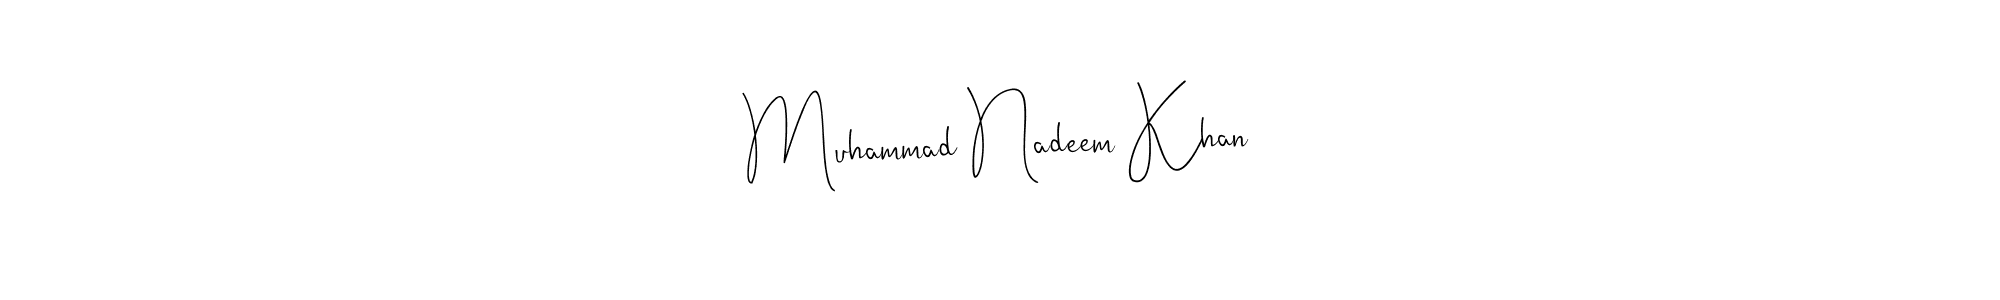 Muhammad Nadeem Khan